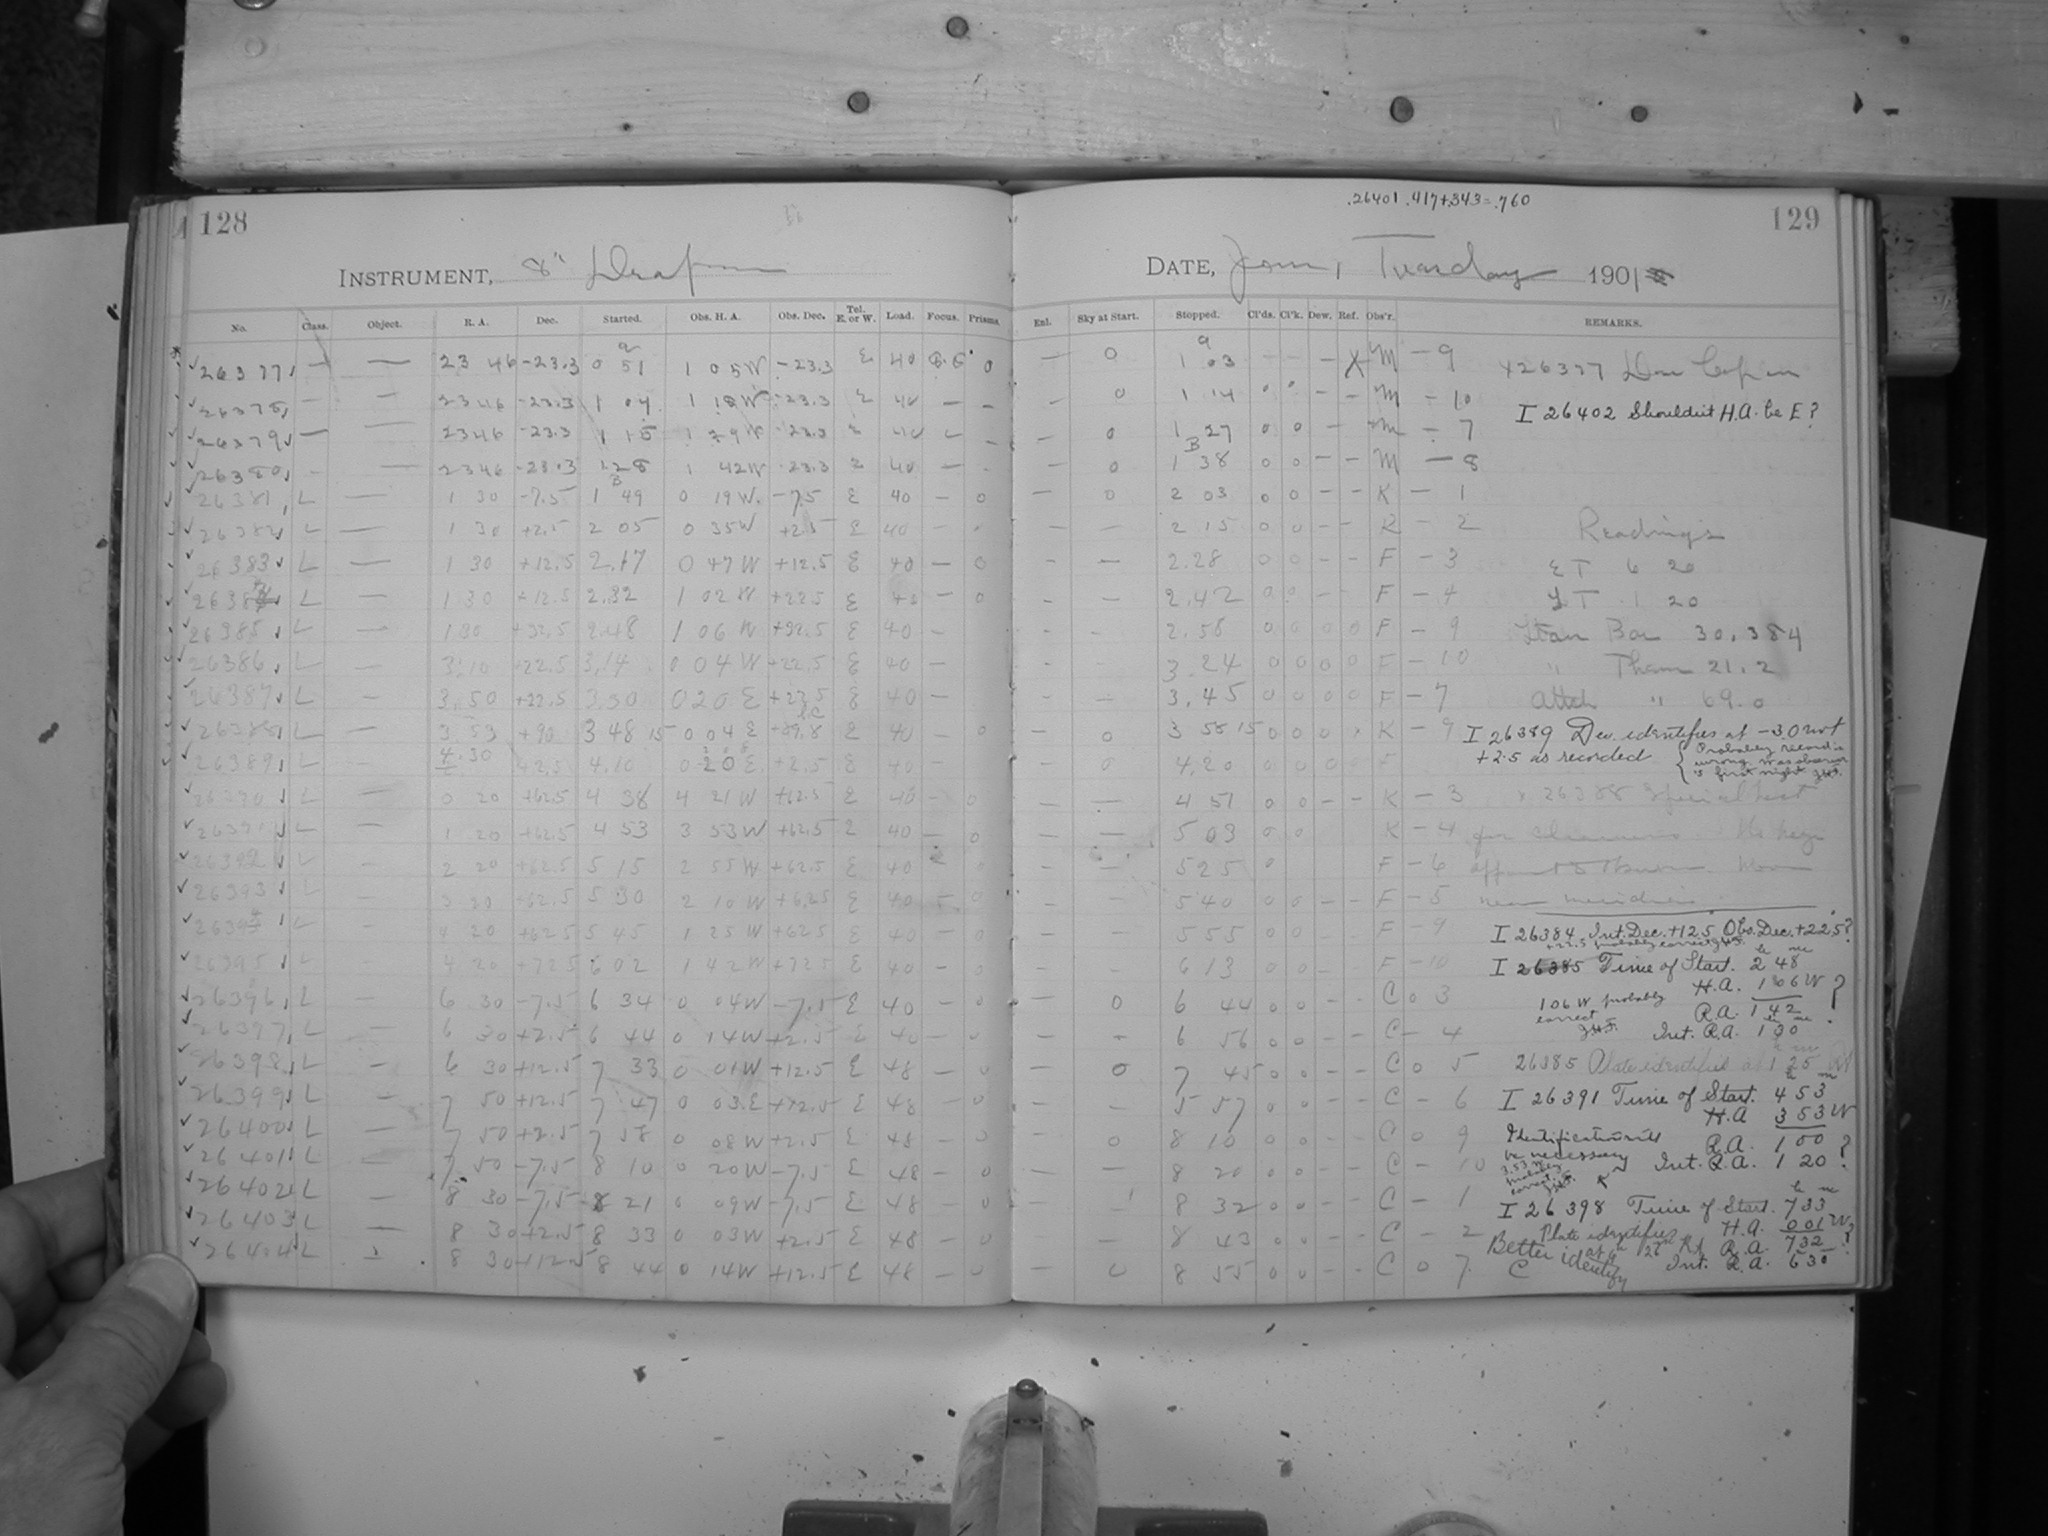 .26401 .417+.343=.760
128
129
INSTRUMENT, 8"
DATE, Tuesday 1901
No. Class. Object. R. A. Dec. Started. Obs. H. A. Obs. Dec. Tel. E. or W. Load. Focus. Prisms.
Enl. Sky at Start. Stopped. Cl'ds. Cl'k. Dew. Ref. Obs'r. REMARKS.
26377 — — 23 46 -23.3 0 51 1 05W -23.3 E 40 0 — 0 1 03 — — — X M — 9
26378 — — 23 46 -23.3 1 04 -23.3 E 40 — — 0 1 14 0 0 — — M — 10
26379 — 23 46 -23.3 1 29W -23.3 E 40 — — — 0 1 27 0 0 — M — 7
26380 — — 23 46 -23.3 1 28 1 42W -23.3 E 40 — — — 0 1 38 0 0 — — M — 8
26381 L — 1 30 -7.5 1 49 0 19W. -7.5 E 40 — 0 — 0 2 03 0 0 — — K — 1
26382 L — 1 30 +2.5 2 05 0 35W +2.5 E 40 — — — 2 15 0 0 — — K — 2
26383 L — 1 30 +12.5 2.17 0 47W +12.5 E 40 — 0 — — 2.28 0 0 — — F — 3
L — 1 30 +12.5 2.32 1 02W +22.5 E 40 — 0 — — 2.42 0 0 — — F — 4
26385 L — 1 30 +32.5 2.48 1 06 W +32.5 E 40 — — — 2.58 0 0 0 0 F — 9
26386 L — 3.10 +22.5 3.14 0 04W +22.5 E 40 — — — 3.24 0 0 0 0 F — 10
26387 L — 3.50 +22.5 3.30 0 20 E E 40 — — — 3.45 0 0 0 0 F — 7
26388 L — 3 53 +90 3 48 15 0 04 E +89.8 E 40 — 0 — 0 3 58 15 0 0 0 x K — 9
26389 L — 4.30 +2.5 4.10 0 20 E +2.5 E 40 — 0 4.20 0 0 0 0 F
26390 L — 0 20 +62.5 4 38 4 21W +62.5 E 40 — 0 — — 4 51 0 0 — — K — 3
26391 L — 1 20 +62.5 4 53 3 53W +62.5 E 40 — 0 — — 5 03 0 0 K — 4
26392 L — 2 20 +62.5 5 15 2 55W +62.5 E 40 — 0 — — 5 25 0 F — 6
26393 L — 3 20 +62.5 5 30 2 10 W +62.5 E 40 — 0 — — 5 40 0 0 — — F — 5
L — 4 20 +62.5 5 45 1 25 W +62.5 E 40 — 0 — — 5 55 0 0 — — F — 9
26395 L — 4 20 +72.5 6 02 1 42W +72.5 E 40 — 0 — — 6 13 0 0 — — F — 10
26396 L — 6 30 -7.5 6 34 0 04W -7.5 E 40 — 0 — 0 6 44 0 0 — — C 0 3
26397 L — 6 30 +2.5 6 44 0 14W +2.5 E 40 — 0 — — 6 56 0 0 — — C — 4
26398 L — 6 30 +12.5 7 33 0 01W +12.5 E 48 — 0 — 0 7 45 0 0 — — C 0 5
26399 L — 7 50 +12.5 7 47 0 03.E +12.5 E 48 — 0 — — 5 57 0 0 — — C — 6
26400 L — 7 50 +2.5 7 58 0 08W +2.5 E 48 — 0 — 0 8 10 0 0 — — C 0 9
26401 L — 7 50 -7.5 8 10 0 20W -7.5 E 48 — 0 — — 8 20 0 0 — — C — 10
26402 L — 8 30 -7.5 8 21 0 09W -7.5 E 48 — 0 — 8 32 0 0 — — C — 1
26403 L — 8 30 +2.5 8 33 0 03W +2.5 E 48 — 0 — — 8 43 0 0 — — C — 2
26404 L 8 30 +12.5 8 44 0 14W +12.5 E 48 — 0 — 0 8 55 0 0 — — C 0 7
x26377
I 26402 Shouldn't H.A. be E?
Readings
E T 6 20
1 20
Bar 30.384
" Therm 21.2
Attch " 69.0
I 26389 Dec. identifies at -3.0 not
+2.5 as recorded { Probably record is
wrong, was observer
's first night
x 26388 Special test
near meridian
I 26384 Int. Dec. +12.5 Obs. Dec. +22.5?
+22.5 probably correct
I 26385 Time of Start. 2 48
H.A. 1 06W
1 06 W probably
correct
R.A. 1 42 ?
Int. R.A. 1 30
26385 Plate identified at 1 25
I 26391 Time of Start. 4 53
H.A 3 53W
Identification will
be necessary R.A. 1 00 ?
3.53 W
probably
correct.
Int. R.A. 1 20
I 26398 Time of Start. 7 33
Plate identifies H.A. 0 01 W
R.A. 7 32 ?
Better identify
Int. R.A. 6 30
C